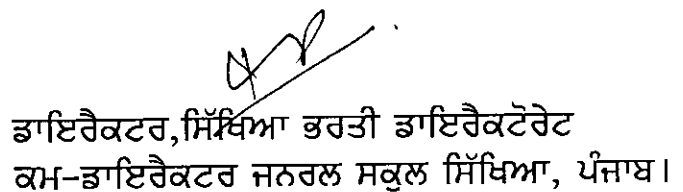 ਡਾਇਰੈਕਟਰ,ਸਿੱਖਿਆ ਭਰਤੀ ਡਾਇਰੈਕਟੋਰੇਟ
ਕਮ-ਡਾਇਰੈਕਟਰ ਜਨਰਲ ਸਕੂਲ ਸਿੱਖਿਆ, ਪੰਜਾਬ।